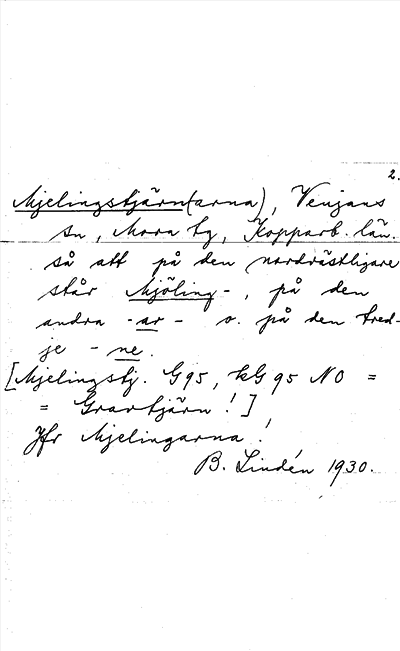 2.
Mjelingstjärn(arna), Venjans
sn, Mora tg, Kopparb. län.
så att på den nordvästligare
står Mjöling-, på den
andra -ar- o. på den tred-
je -ne.
[Mjelingstj. G95, kG 95 NO =
= Gravtjärn! ]
Jfr Mjelingarna!
B. Lindén 1930.